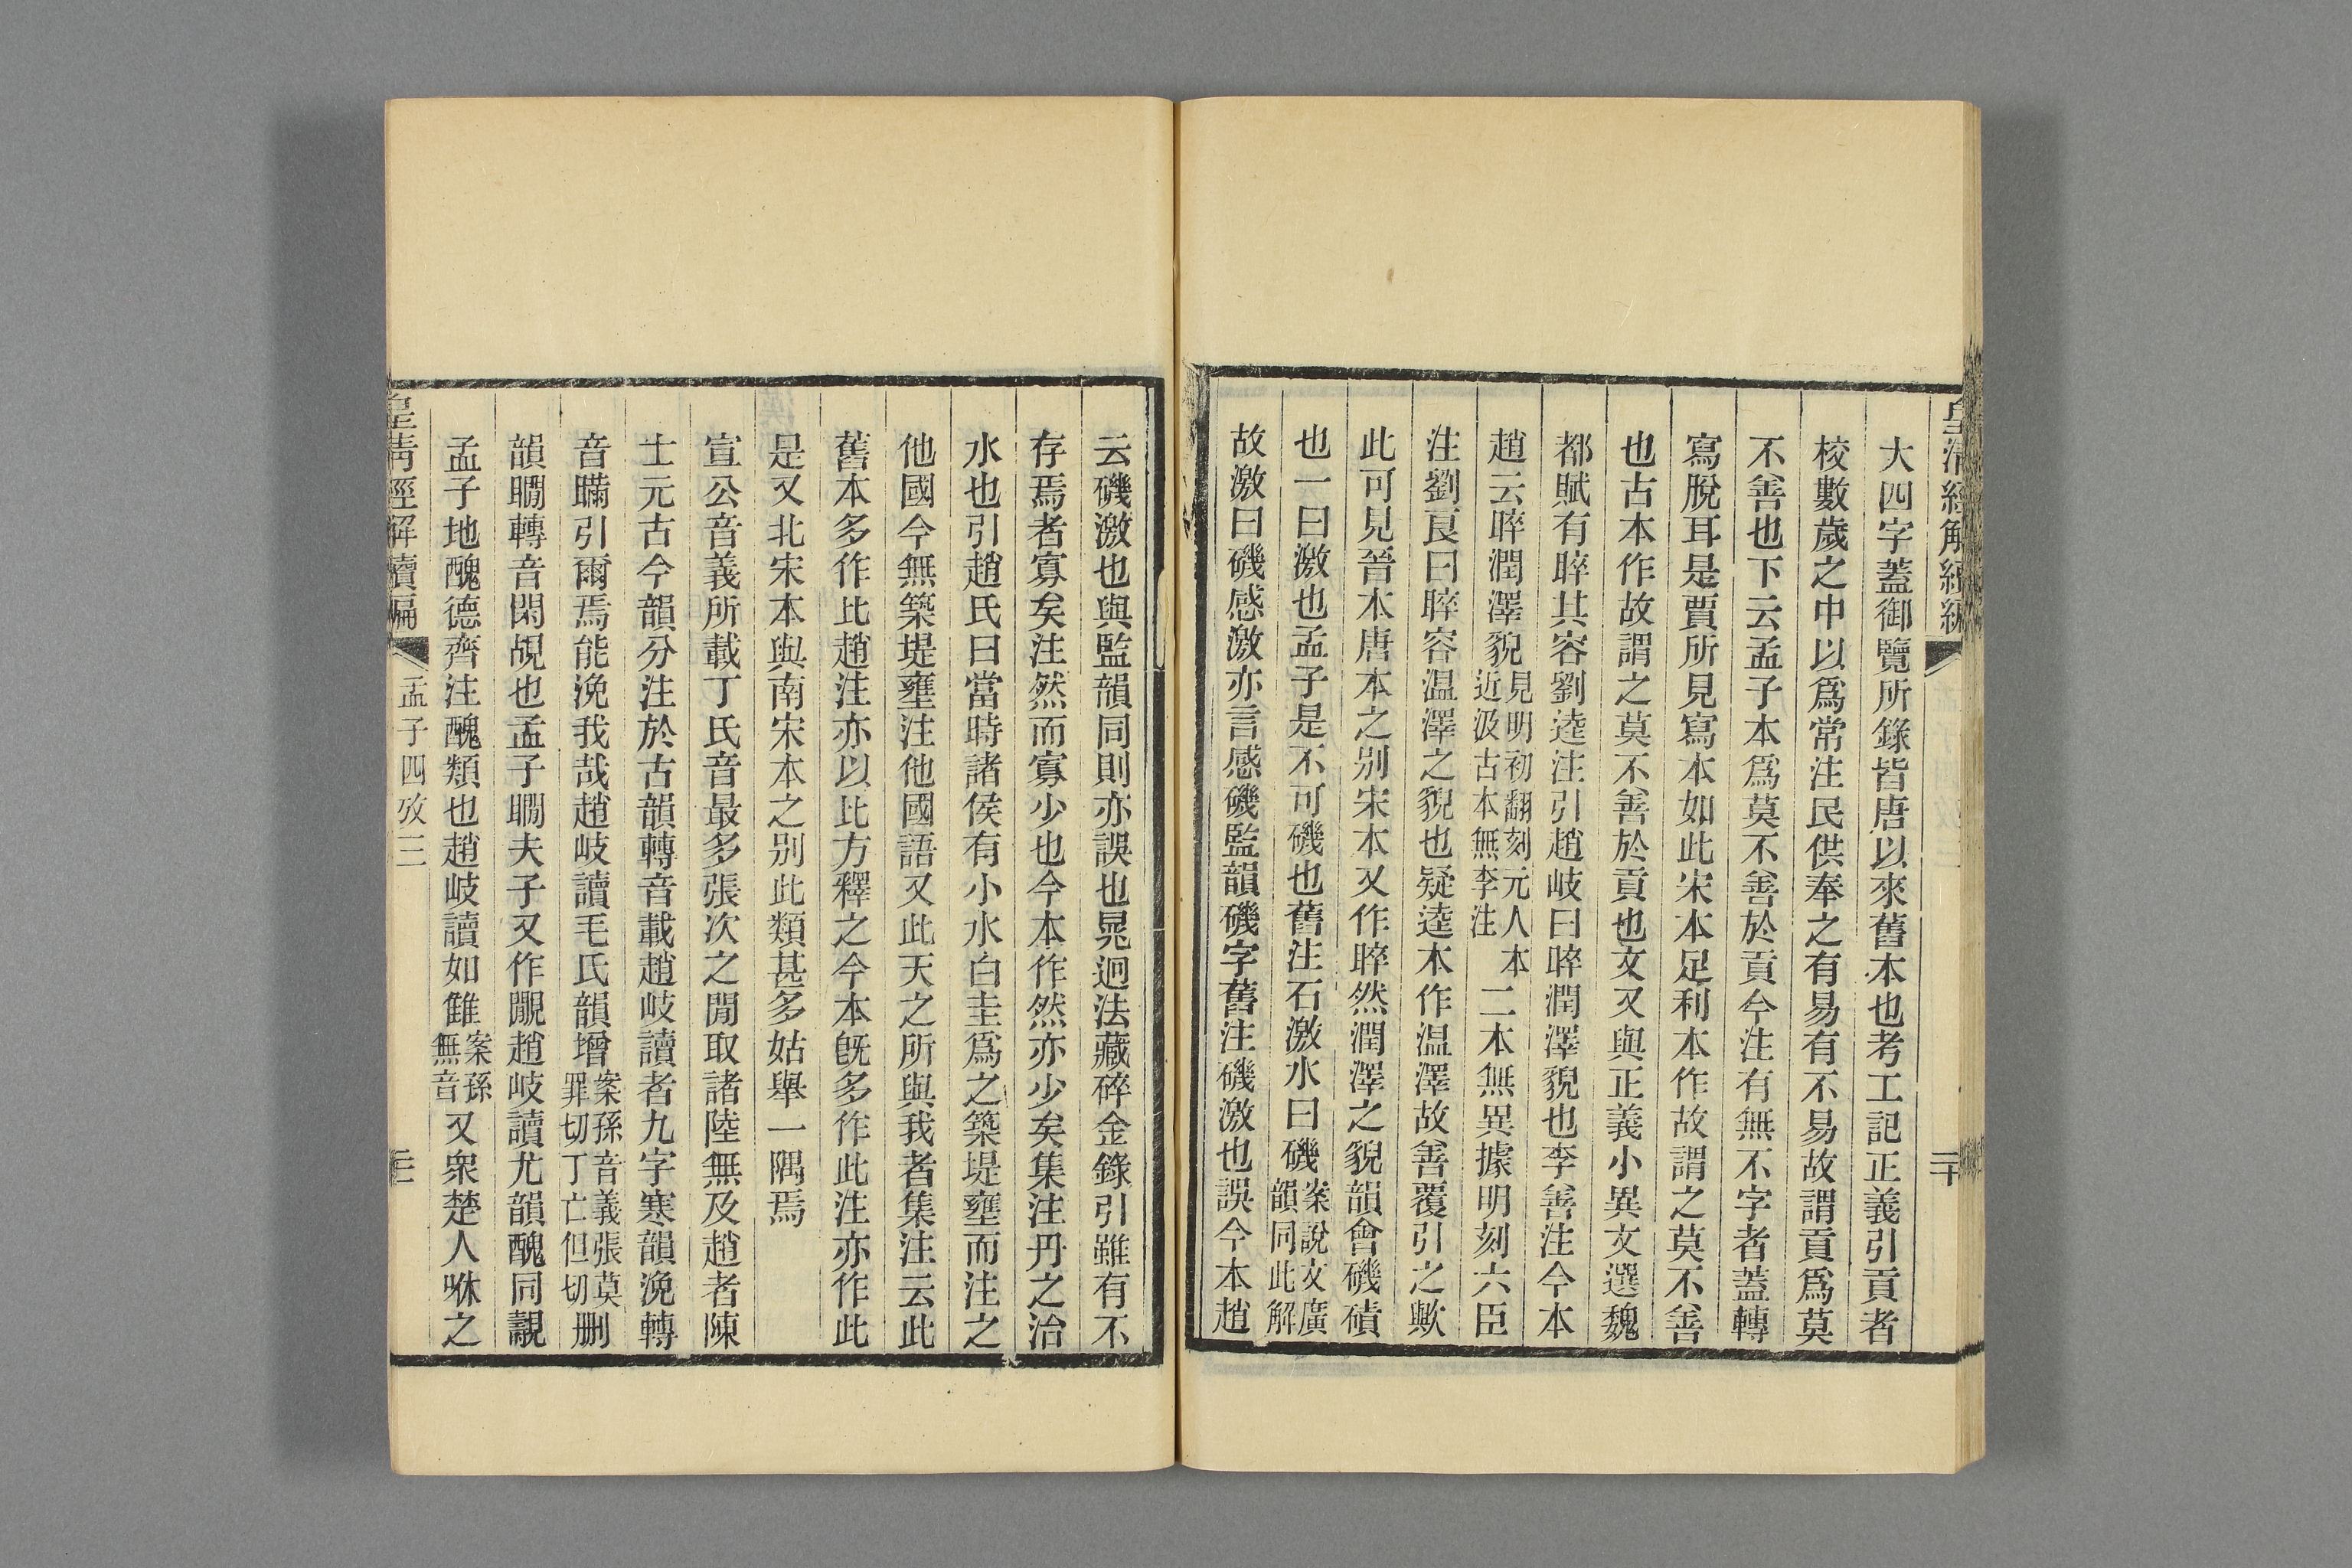 皇清經解續編
二十
大四字蓋御覽所錄皆唐以來舊本也考工記正義引貢者
校數歲之中以爲常注民供奉之有易有不易故謂貢爲莫
不善也下云孟子本爲莫不善於貢今注有無不字者蓋轉
寫脫耳是賈所見寫本如此宋本足利本作故謂之莫不善
也古本作故謂之莫不善於貢也文又與正義小異文選魏
都賦有睟其容劉逵注引趙岐曰睟潤澤貌也李善注今本
趙云睟潤澤貌見明初翻刻元人本近汲古本無李注二本無異據明刻六臣
注劉良曰睟容温澤之貌也疑逵本作温澤故善覆引之歟
此可見晉本唐本之别宋本又作睟然潤澤之貌韻會磯磧
也一曰激也孟子是不可磯也舊注石激水曰磯案說文廣韻同此解
故激曰磯感激亦言感磯監韻磯字舊注磯激也誤今本趙
云磯激也與監韻同則亦誤也晁迥法藏碎金錄引雖有不
存焉者寡矣注然而寡少也今本作然亦少矣集注丹之治
水也引趙氏曰當時諸侯有小水白圭爲之築堤壅而注之
他國今無築堤壅注他國語又此天之所與我者集注云此
舊本多作比趙注亦以比方釋之今本旣多作此注亦作此
是又北宋本與南宋本之别此類甚多姑舉一隅焉
宣公音義所載丁氏音最多張次之閒取諸陸無及趙者陳
士元古今韻分注於古韻轉音載趙岐讀者九字寒韻浼轉
音瞞引爾焉能浼我哉趙岐讀毛氏韻增案孫音義張莫罪切丁亡但切删
韻瞯轉音閑覘也孟子瞯夫子又作覸趙岐讀尤韻醜同覯
孟子地醜德齊注醜類也趙岐讀如雔案孫無音又衆楚人咻之
皇清經解續編
孟子四攷三